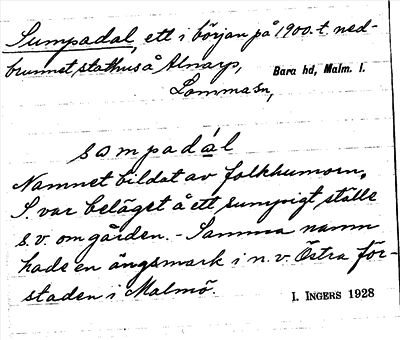 Sumpadal, ett i början på 1900.t. ned-
brunnet stathus å Alnarp,
Bara hd, Malm. l.
Lomma sn,
sampadál
Namnet bildat av folkhumorn.
S. var beläget å ett sumpigt ställe
s.v. om gården. - Samma namn
hade en ängsmark i n.v. Östra för-
staden i Malmö.
I. INGERS 1928